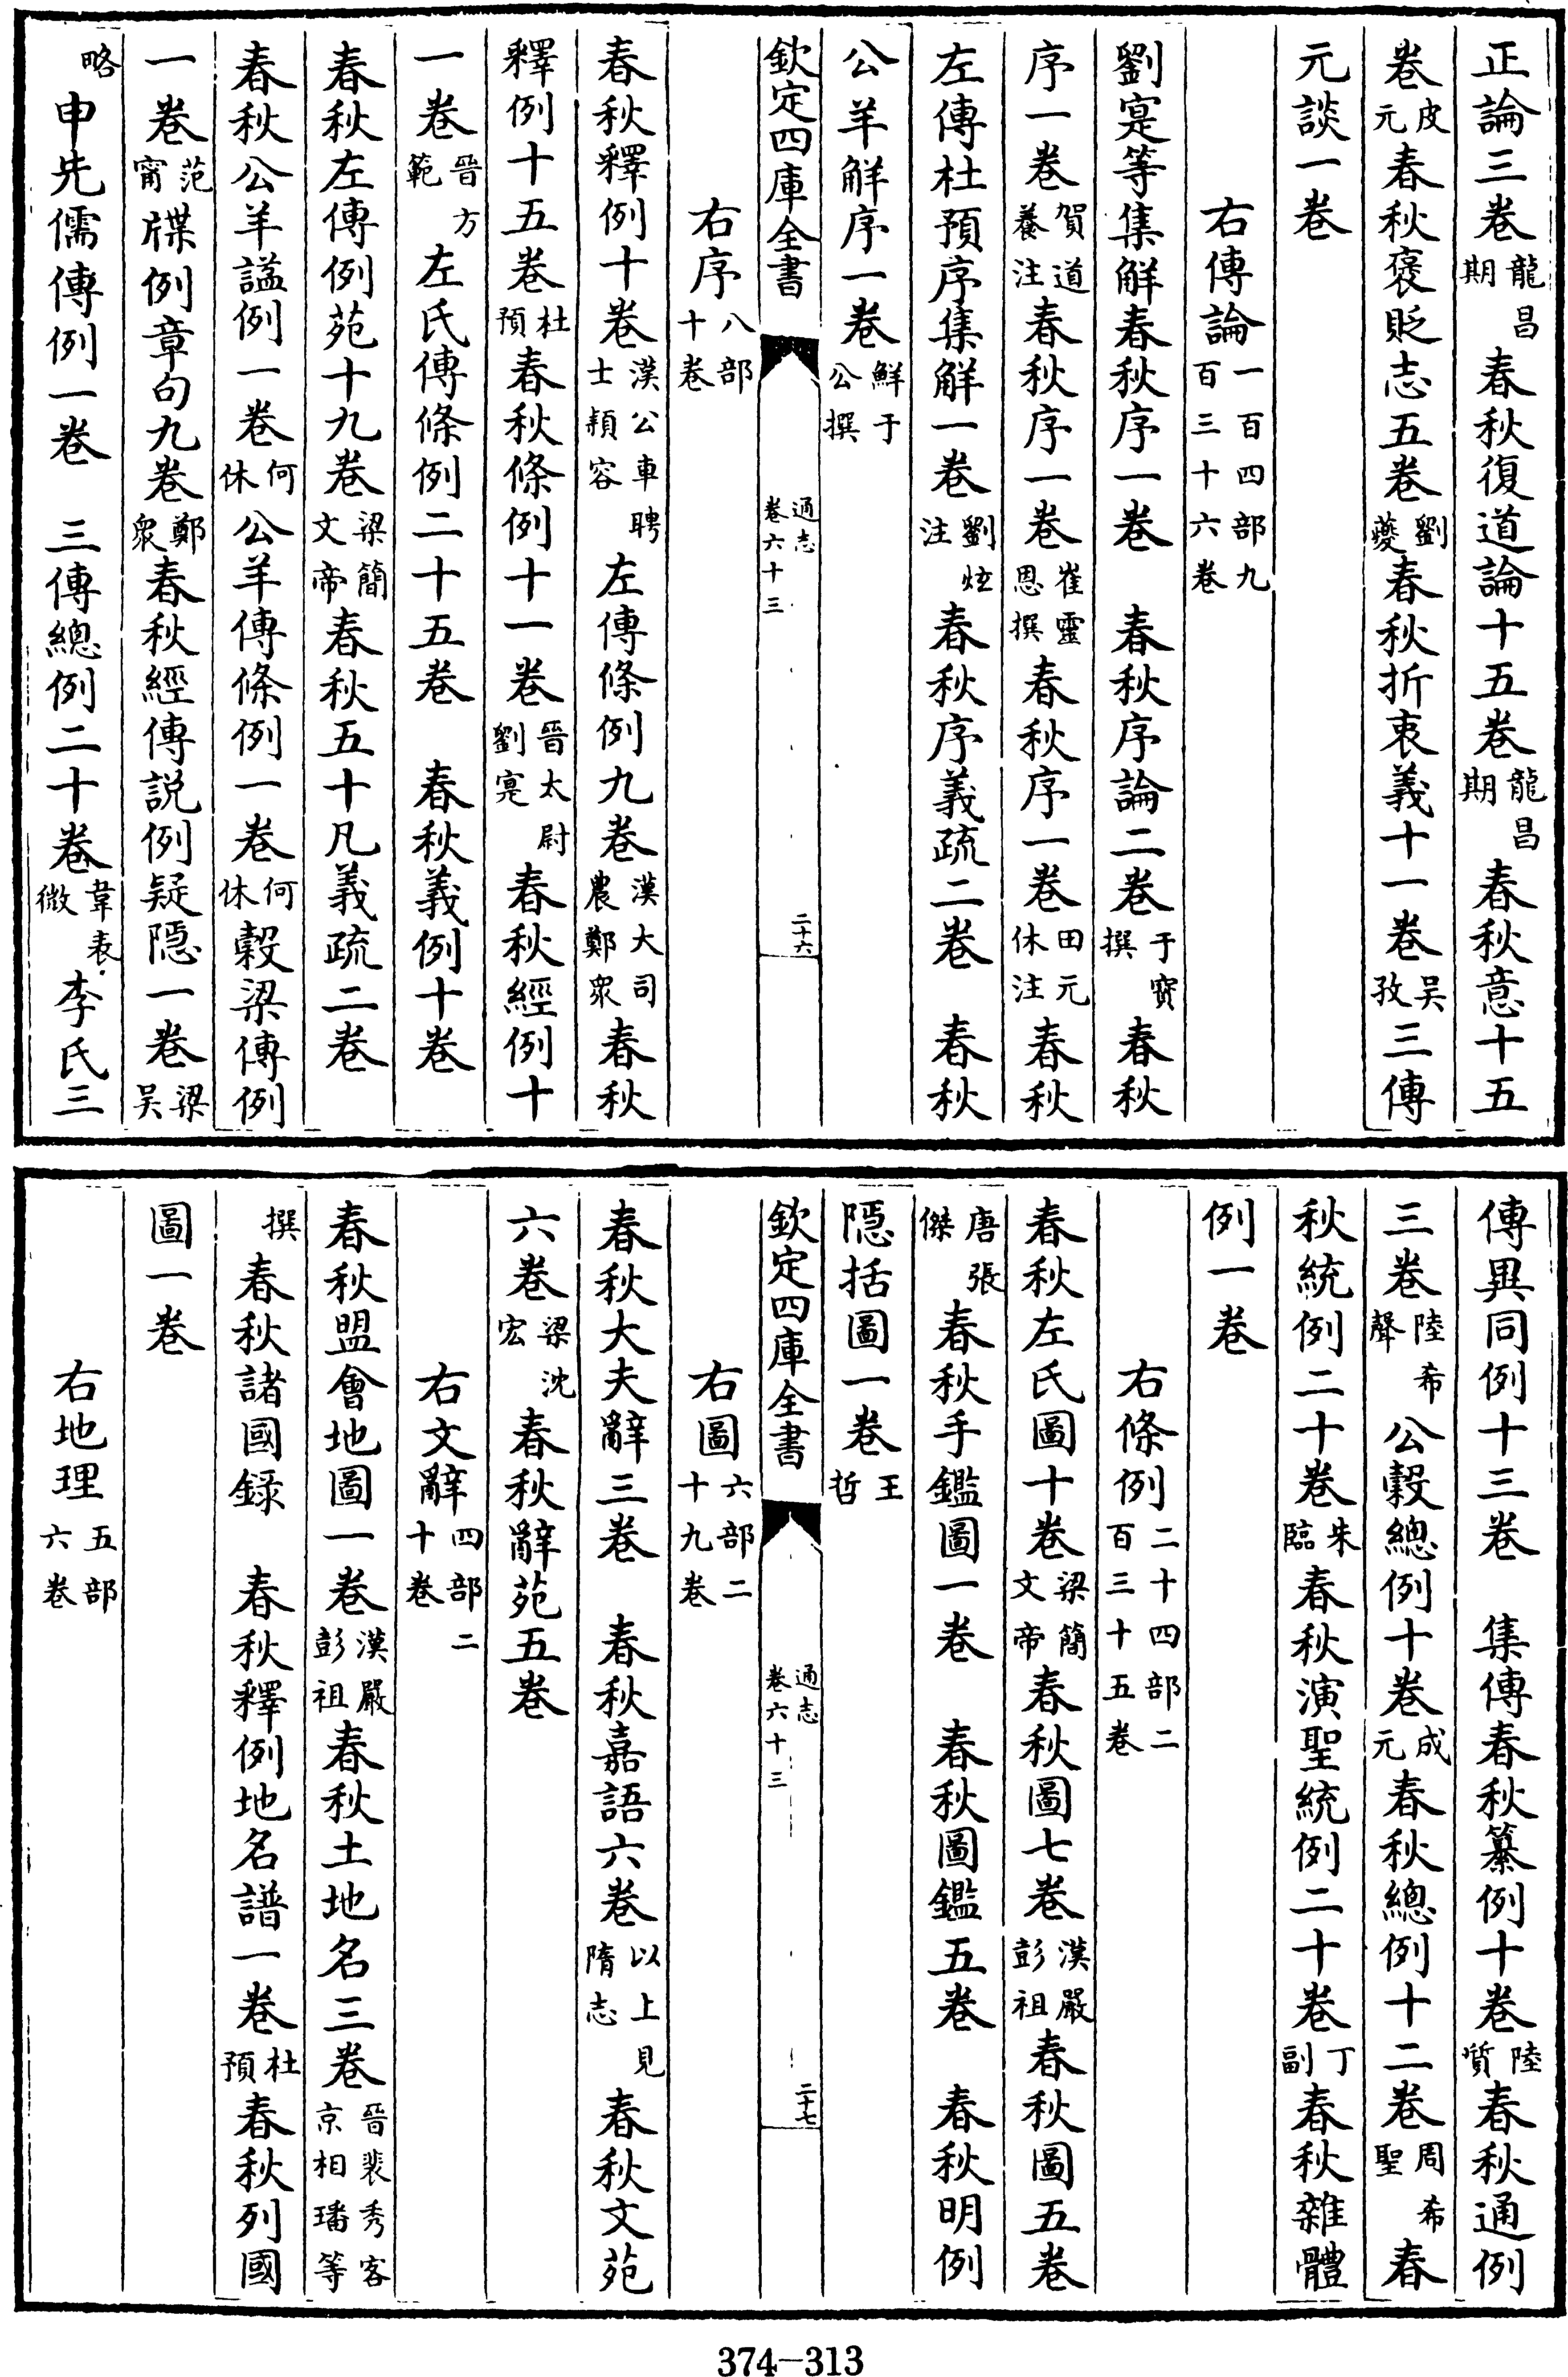 正論三卷龍昌期春秋復道論十五卷龍昌期春秋意十五
卷皮元春秋褒貶志五卷劉夔春秋折衷義十一卷吴孜三傳
元談一卷
右傳論一百四部九百三十六卷
劉寔等集解春秋序一卷 春秋序論二卷于寶撰春秋
序一卷賀道養注春秋序一卷崔靈恩撰春秋序一卷田元休注春秋
左傳杜預序集解一卷劉炫注春秋序義疏二卷 春秋
公羊解序一卷鮮于公撰
欽定四庫全書 通志卷六十三 二十六
右序八部十卷
春秋釋例十卷漢公車聘士頴容左傳條例九卷漢大司農鄭衆春秋
釋例十五卷杜預春秋條例十一卷晉太尉劉寔春秋經例十
一卷晉方範左氏傳條例二十五卷 春秋義例十卷
春秋左傳例苑十九卷梁簡文帝春秋五十凡義疏二卷
春秋公羊諡例一卷何休公羊傳條例一卷何休榖梁傳例
一卷范甯牒例章句九卷鄭衆春秋經傳説例疑隱一卷梁吴
略申先儒傳例一卷 三傳總例二十卷韋表微李氏三
傳異同例十三卷 集傳春秋纂例十卷陸質春秋通例
三卷陸希聲公榖總例十卷成元春秋總例十二卷周希聖春
秋統例二十卷朱臨春秋演聖統例二十卷丁副春秋雜體
例一卷
右條例二十四部二百三十五卷
春秋左氏圖十卷梁簡文帝春秋圖七卷漢嚴彭祖春秋圖五卷
唐張傑春秋手鑑圖一卷 春秋圖鑑五卷 春秋明例
隱括圖一卷王哲
欽定四庫全書 通志卷六十三 二十七
右圖六部二十九卷
春秋大夫辭三卷 春秋嘉語六卷以上見隋志春秋文苑
六卷梁沈宏春秋辭苑五卷
右文辭四部二十卷
春秋盟會地圖一卷漢嚴彭祖春秋土地名三卷晉裴秀客京相璠等
撰春秋諸國録 春秋釋例地名譜一卷杜預春秋列國
圖一卷
右地理五部六卷
374-313